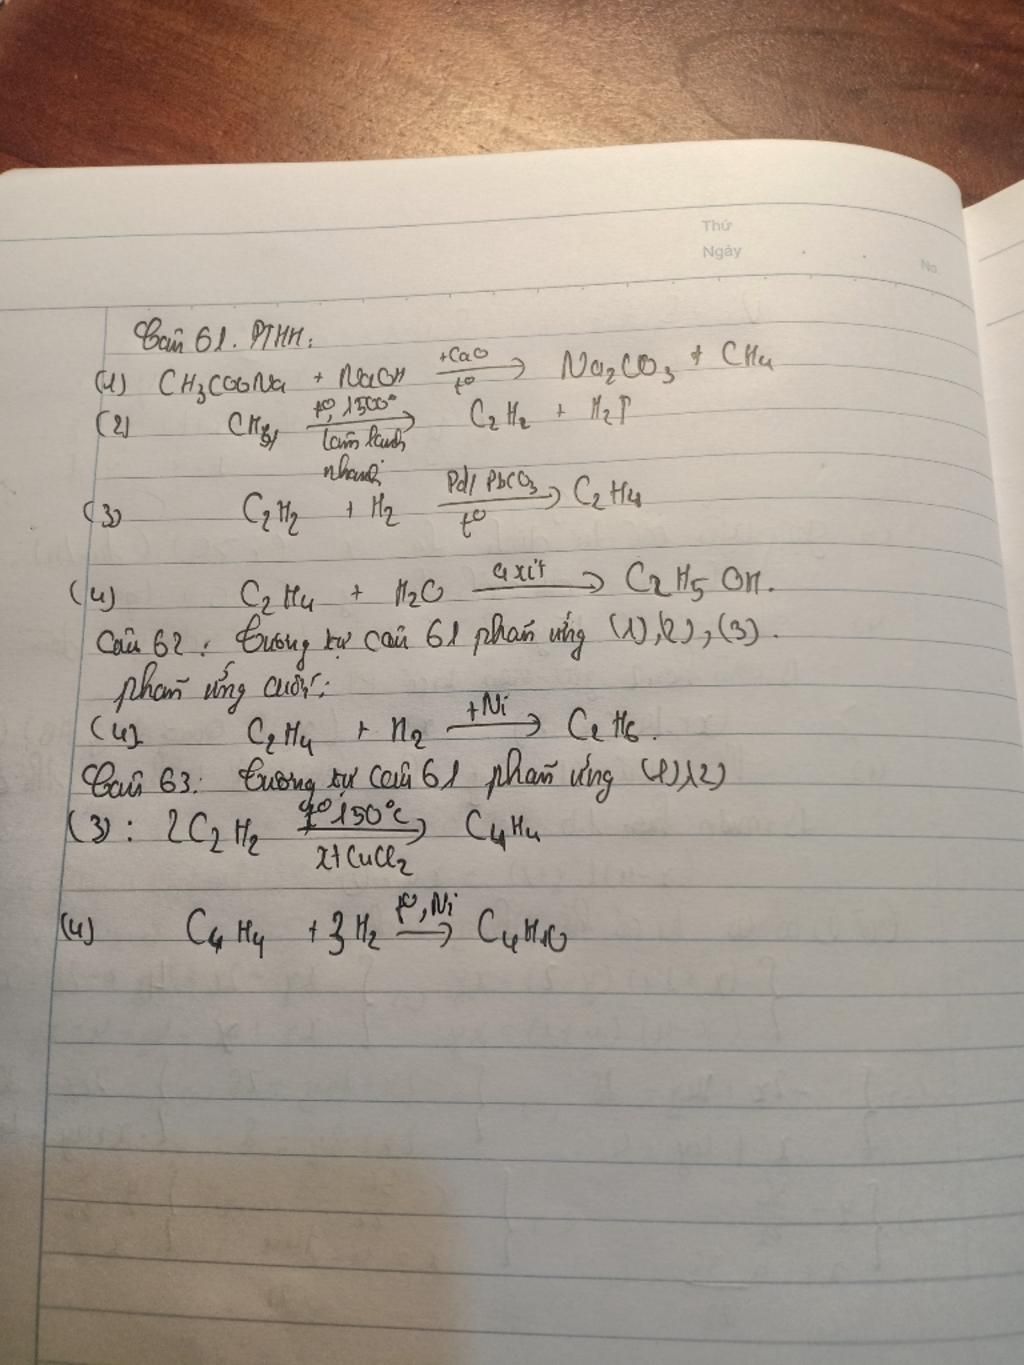 Thứ
Ngày
No.
Câu 61. PTHH:
(1) CH3COONa + NaOH +CaO t° → Na2CO3 + CH4
(2) t°, 1500° → C2H2 + H2↑
làm lạnh
nhanh
(3) C2H2 + H2 Pd/PbCO3 t° → C2H4
(4) C2H4 + H2O axit → C2H5OH.
Câu 62: Tương tự câu 61 phản ứng (1),(2),(3).
phản ứng cuối:
(4) C2H4 + H2 +Ni → C2H6.
Câu 63: Tương tự câu 61 phản ứng (1),(2)
(3): 2C2H2 t° 150°C → C4H4
xt CuCl2
(4) C4H4 + 3H2 t°, Ni → C4H10